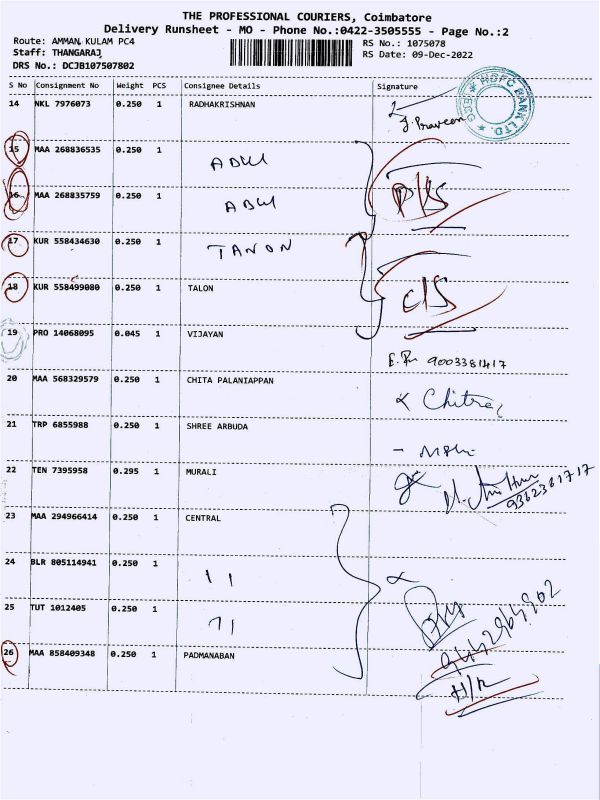 THE PROFESSIONAL COURIERS, Coimbatore
Delivery Runsheet - MO - Phone No.:0422-3505555 - Page No.:2
Route: AMMAN KULAM PC4 RS No.: 1075078
Staff: THANGARAJ RS Date: 09-Dec-2022
DRS No.: DCJB107507802
S No Consignment No Weight PCS Consignee Details Signature
14 NKL 7976073 0.250 1 RADHAKRISHNAN
J. Praveen
HDFC BANK LTD.
15 MAA 268836535 0.250 1 ADW
16 MAA 268835759 0.250 1 ADW P/S
17 KUR 558434630 0.250 1 TANON
18 KUR 558499080 0.250 1 TALON C/S
19 PRO 14068095 0.045 1 VIJAYAN
9003381417
20 MAA 568329579 0.250 1 CHITA PALANIAPPAN Chitra
21 TRP 6855988 0.250 1 SHREE ARBUDA
22 TEN 7395958 0.295 1 MURALI
9362381717
23 MAA 294966414 0.250 1 CENTRAL
24 BLR 805114941 0.250 1 11
25 TUT 1012405 0.250 1 11
9442964902
26 MAA 858409348 0.250 1 PADMANABAN H/R